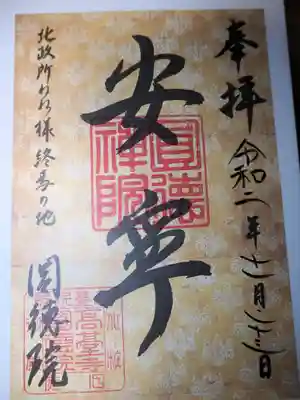 奉拝
令和二年十一月二十三日
安寧
圓德
禪院
北政所ねね様終焉の地
圓徳院